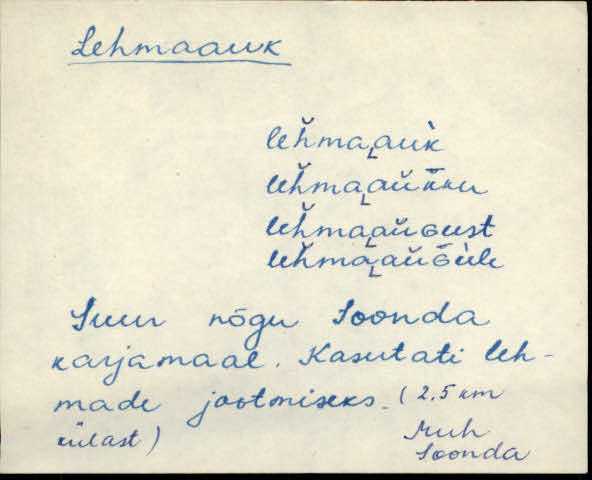 Lehmaauk
leh̆ma˛auk̀
leh̆ma˛aŭk̄ku
leh̆ma˛aŭGust
leh̆ma˛aŭG̀ùle
Suur nõgu Soonda
karjamaal. Kasutati leh-
made jootmiseks. (2,5 km
külast)
Muh
Soonda